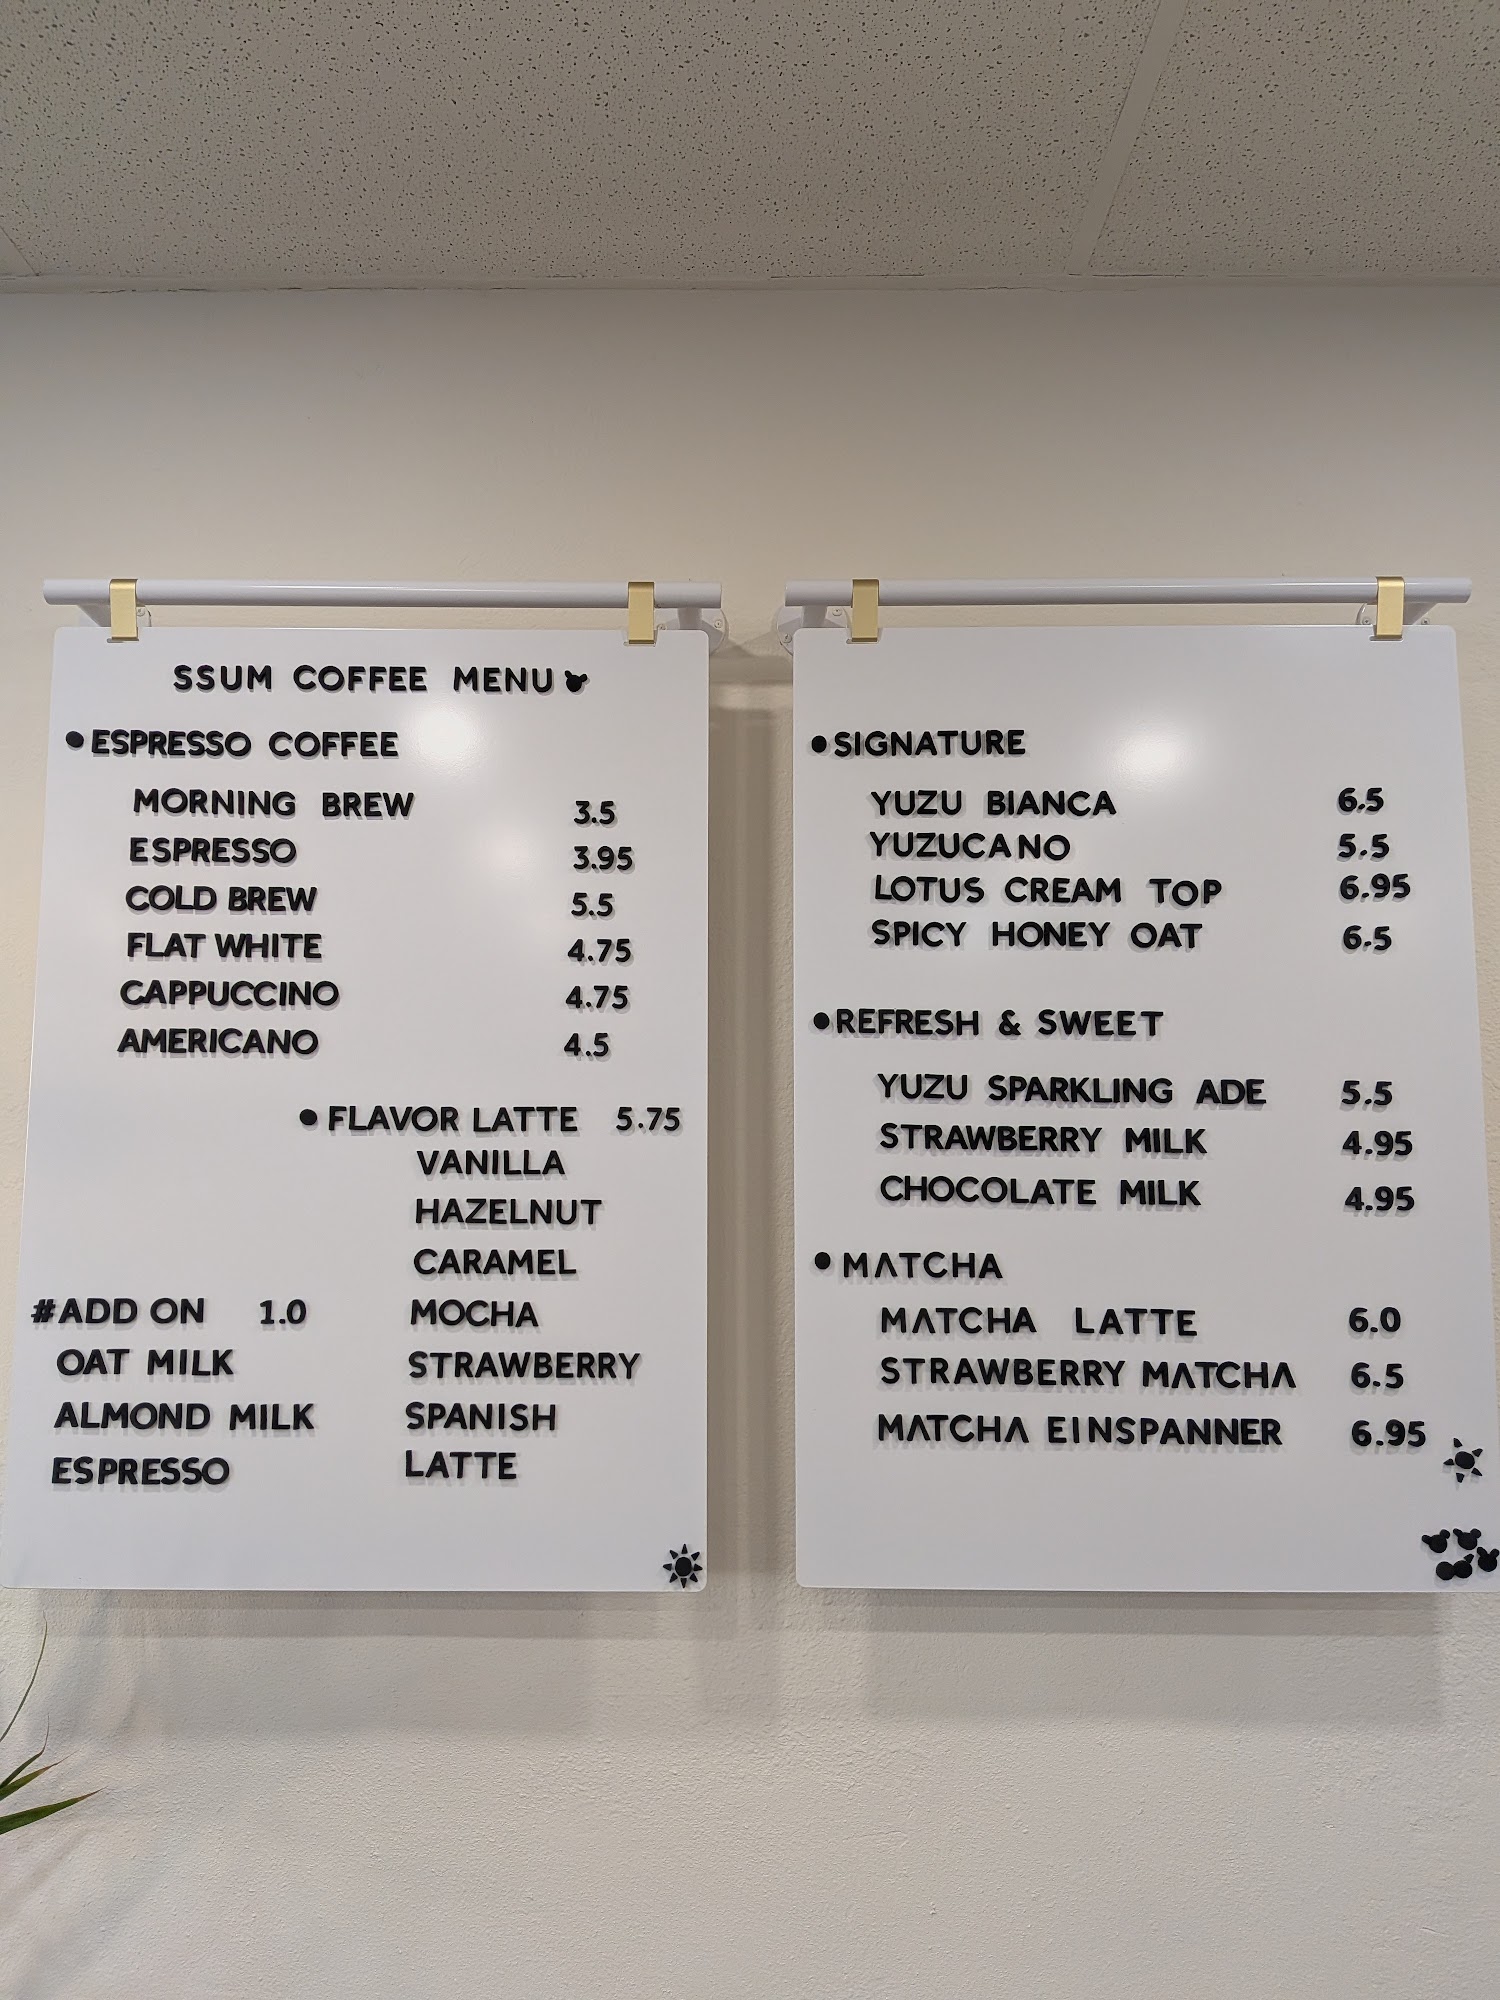 SSUM COFFEE MENU
●ESPRESSO COFFEE
MORNING BREW 3.5
ESPRESSO 3.95
COLD BREW 5.5
FLAT WHITE 4.75
CAPPUCCINO 4.75
AMERICANO 4.5
●FLAVOR LATTE 5.75
VANILLA
HAZELNUT
CARAMEL
MOCHA
STRAWBERRY
SPANISH
LATTE
#ADD ON 1.0
OAT MILK
ALMOND MILK
ESPRESSO
●SIGNATURE
YUZU BIANCA 6.5
YUZUCANO 5.5
LOTUS CREAM TOP 6.95
SPICY HONEY OAT 6.5
●REFRESH & SWEET
YUZU SPARKLING ADE 5.5
STRAWBERRY MILK 4.95
CHOCOLATE MILK 4.95
●MATCHA
MATCHA LATTE 6.0
STRAWBERRY MATCHA 6.5
MATCHA EINSPANNER 6.95